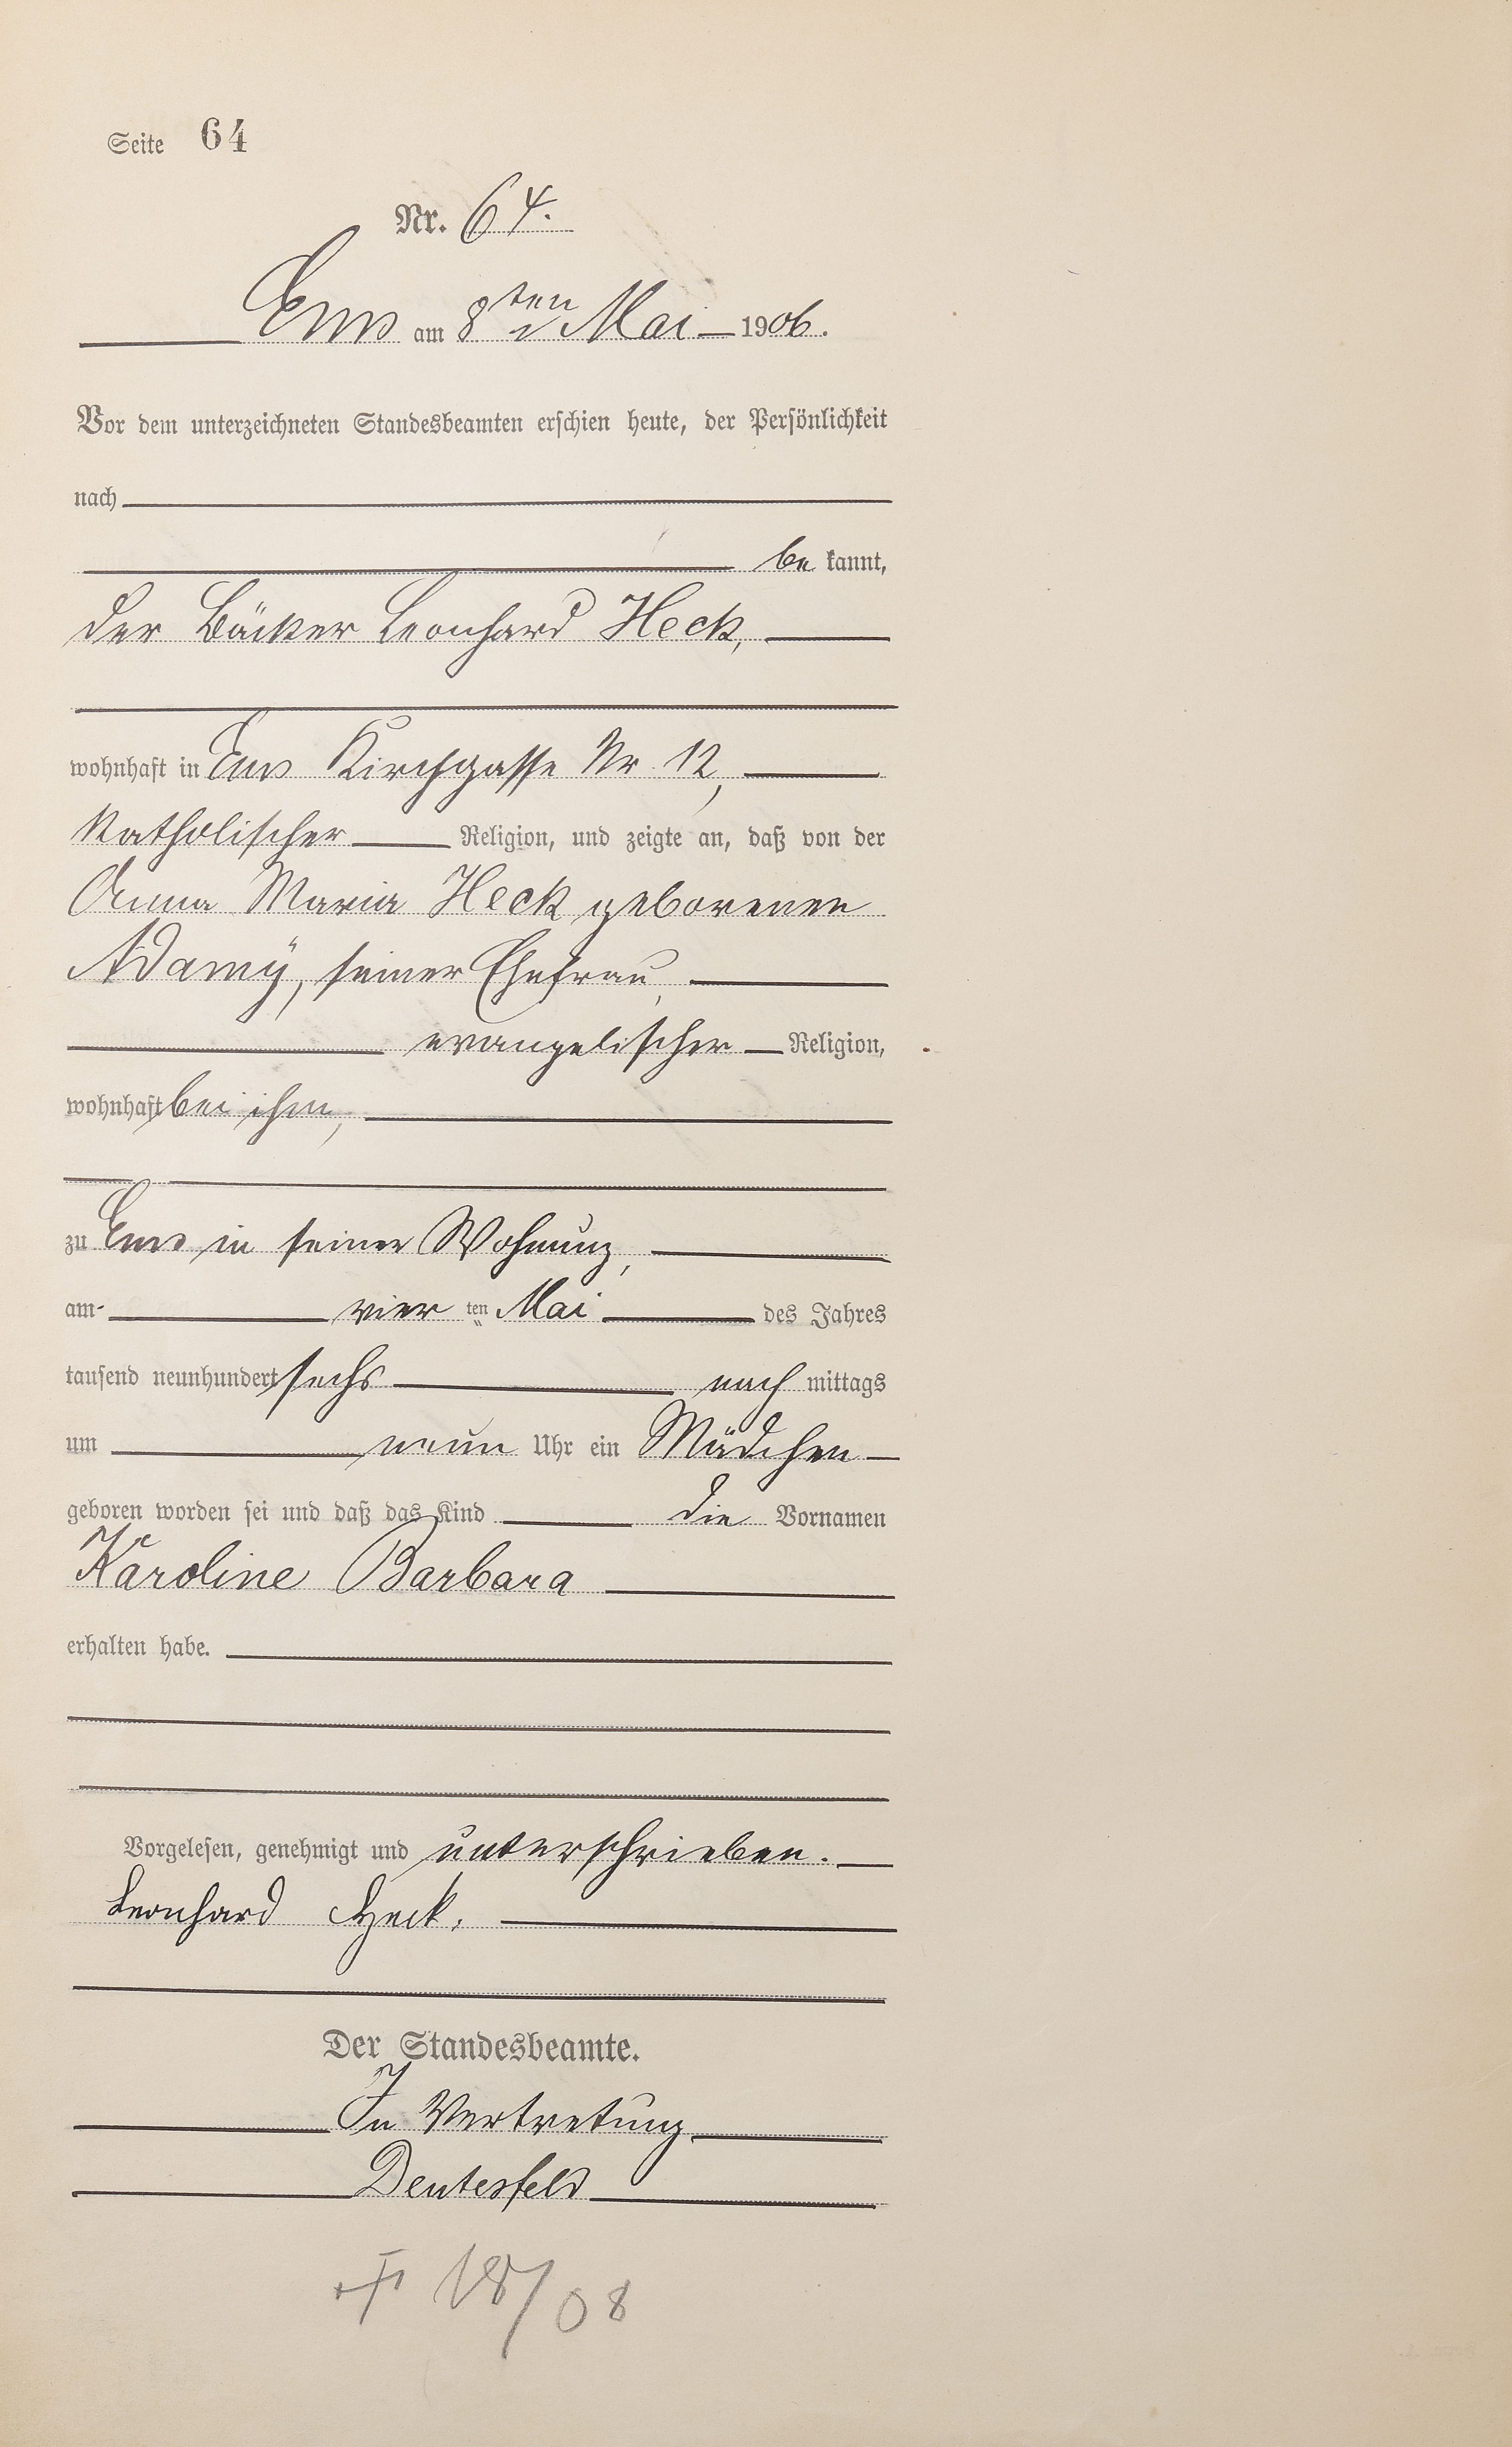 Seite 64
Nr. 64.
Ems am 8ten Mai 1906.
Vor dem unterzeichneten Standesbeamten erschien heute, der Persönlichkeit
nach
be kannt,
der Bäcker Leonhard Heck,
wohnhaft in Ems Kirchgasse Nr 12,
katholischer Religion, und zeigte an, daß von der
Anna Maria Heck geborenen
Adamÿ, seiner Ehefrau,
evangelischer Religion,
wohnhaft bei ihm,
zu Ems in seiner Wohnung,
am vier ten Mai des Jahres
tausend neunhundert sechs nach mittags
um neun Uhr ein Mädchen
geboren worden sei und daß das Kind die Vornamen
Karoline Barbara
erhalten habe.
Vorgelesen, genehmigt und unterschrieben.
Leonhard Heck.
Der Standesbeamte.
In Vertretung
Deutesfeld
† 18/08